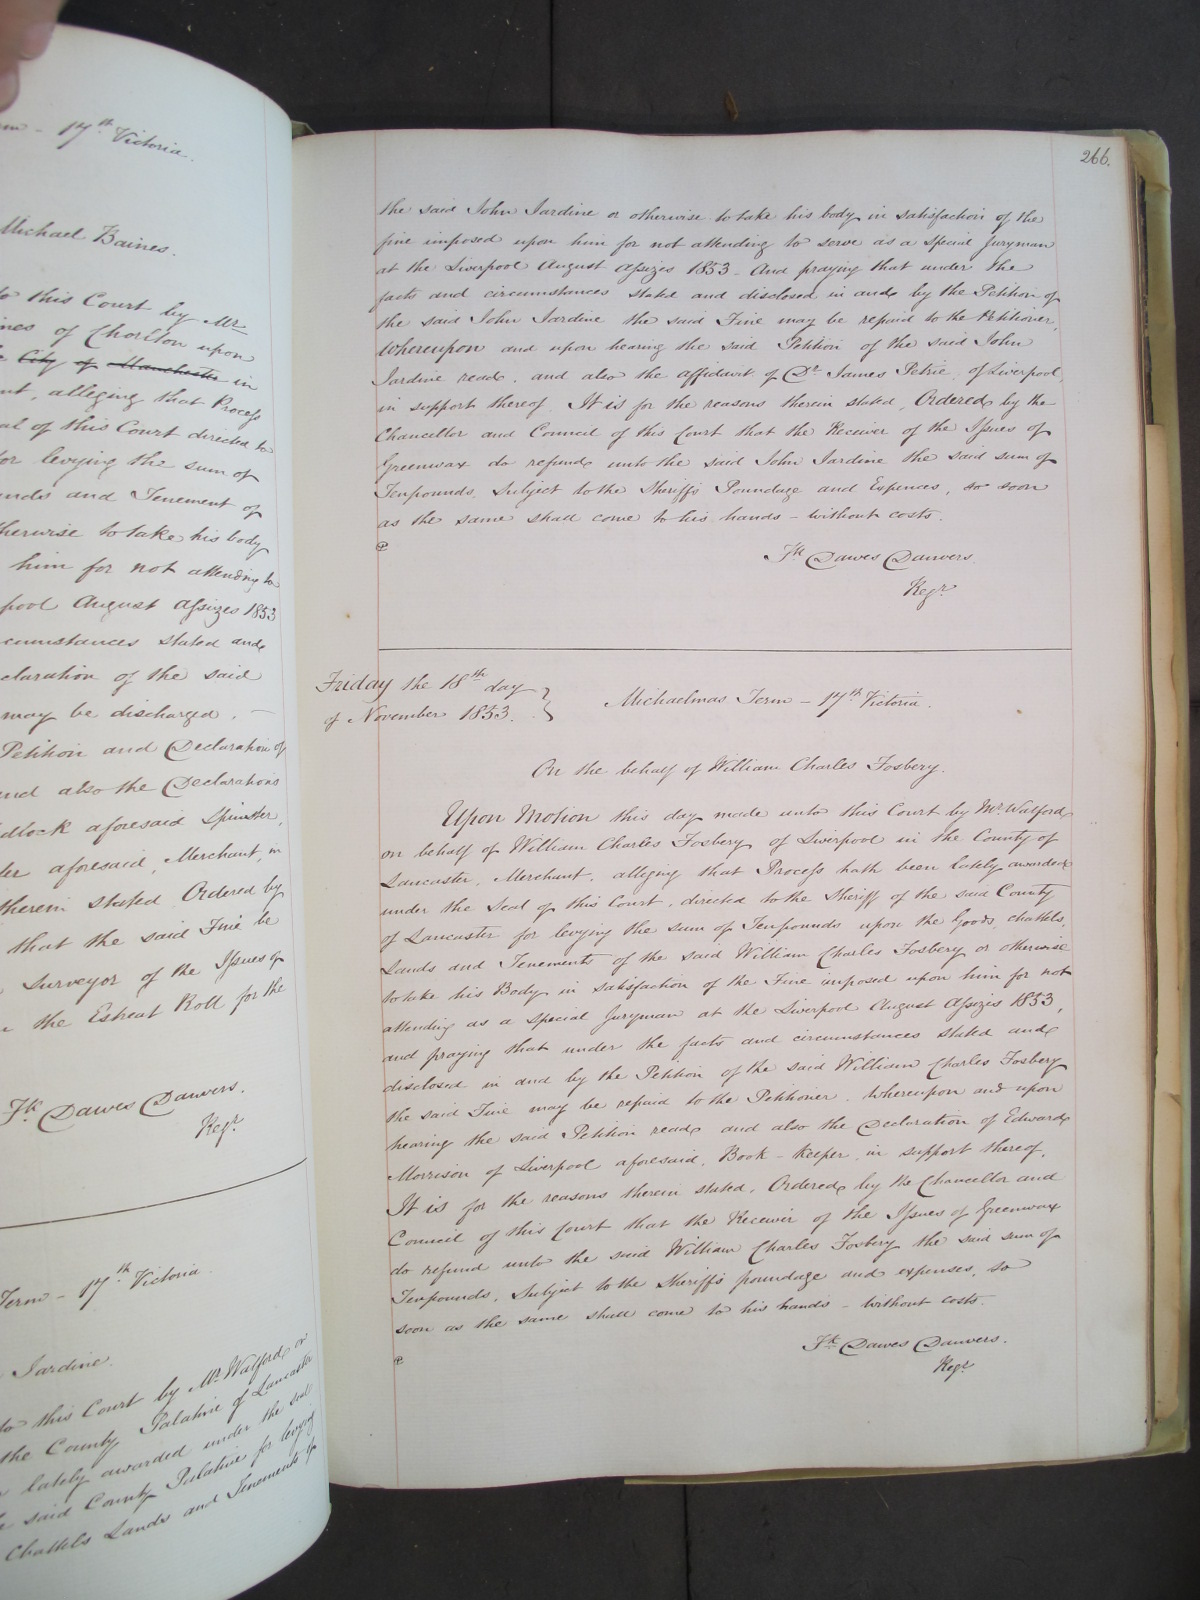 17th Victoria.
Michael Baines.
to this Court by Mr
of Chorlton upon
City of Manchester in
alleging that Process
of this Court directed to
for levying the sum of
and Tenement of
otherwise to take his body
him for not attending to
August Assizes 1853
stated and
of the said
may be discharged. —
Petition and Declaration of
and also the Declarations
aforesaid Spinster,
aforesaid, Merchant, in
therein stated Ordered by
that the said Fine be
Surveyor of the Issues of
the Estreat Roll for the
Fk Dawes Danvers.
Regr
Term – 17th Victoria.
Jardine.
to this Court by Mr Walford on
the County Palatine of Lancaster
lately awarded under the seal
said County Palatine for levying
Chattels Lands and Tenements of
266.
the said John Jardine or otherwise to take his body in satisfaction of the
fine imposed upon him for not attending to serve as a Special Juryman
at the Liverpool August Assizes 1853 – And praying that under the
facts and circumstances stated and disclosed in and by the Petition of
the said John Jardine the said Fine may be repaid to the Petitioner,
Whereupon and upon hearing the said Petition of the said John
Jardine read, and also the affidavit of Dr James Petrie, of Liverpool,
in support thereof, It is for the reasons therein stated, Ordered by the
Chancellor and Council of this Court that the Receiver of the Issues of
Greenwax do refund unto the said John Jardine the said sum of
Tenpounds, Subject to the Sheriffs Poundage and Expences, so soon
as the same shall come to his hands – without costs.
Fk Dawes Danvers.
Regr
Friday the 18th day
of November 1853.
Michaelmas Term – 17th Victoria.
On the behalf of William Charles Fosbery.
Upon Motion this day made unto this Court by Mr Walford
on behalf of William Charles Fosbery of Liverpool in the County of
Lancaster, Merchant, alleging that Process hath been lately awarded
under the Seal of this Court, directed to the Sheriff of the said County
of Lancaster for levying the sum of Tenpounds upon the Goods, chattels,
Lands and Tenements of the said William Charles Fosbery or otherwise
to take his Body in satisfaction of the Fine imposed upon him for not
attending as a Special Juryman at the Liverpool August Assizes 1853,
and praying that under the facts and circumstances stated and
disclosed in and by the Petition of the said William Charles Fosbery
the said Fine may be repaid to the Petitioner. Whereupon and upon
hearing the said Petition read and also the Declaration of Edward
Morrison of Liverpool aforesaid, Book-keeper in support thereof,
It is for the reasons therein stated, Ordered by the Chancellor and
Council of this Court that the Receiver of the Issues of Greenwax
do refund unto the said William Charles Fosbery the said sum of
Tenpounds, Subject to the Sheriffs poundage and expenses, so
soon as the same shall come to his hands – without costs.
Fk Dawes Danvers.
Regr